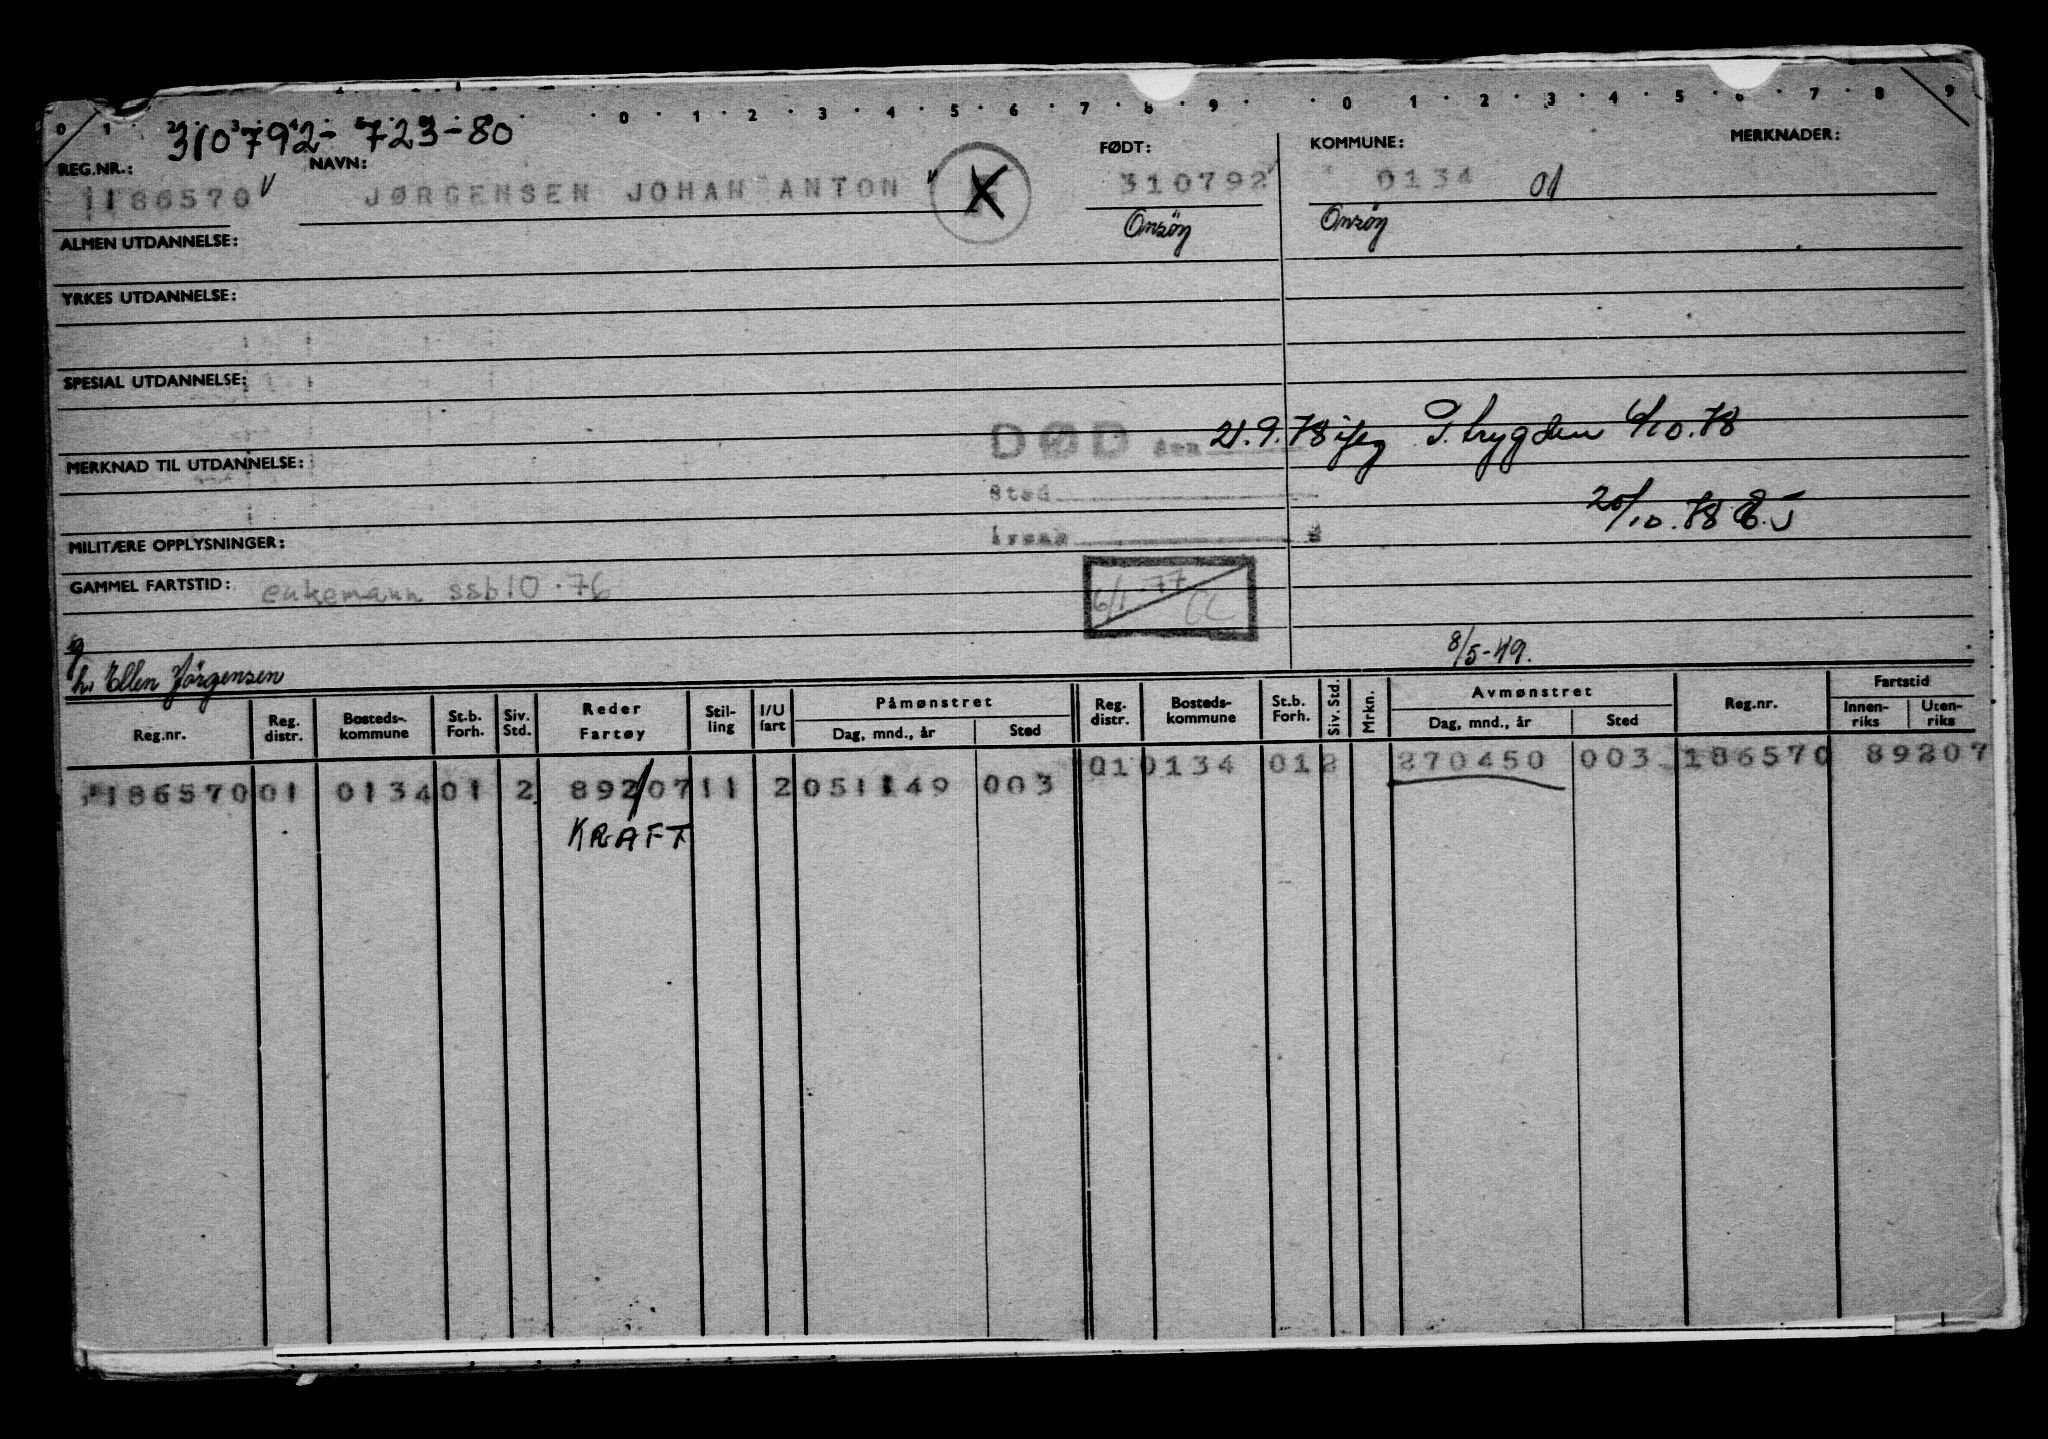 0 1 2 3 4 5 6 7 8 9 0 1 2 3 4 5 6 7 8 9
310792-723-80
REG.NR.: NAVN: FØDT: KOMMUNE: MERKNADER:
1186570 V JØRGENSEN JOHAN ANTON X 310792 0134 01
Onsöy Onsöy
ALMEN UTDANNELSE:
YRKES UTDANNELSE:
SPESIAL UTDANNELSE:
DØD den 21.9.78 ifeg P. trygden 6/10.78
MERKNAD TIL UTDANNELSE:
Sted
20/10.78
MILITÆRE OPPLYSNINGER:
Årsak
GAMMEL FARTSTID: enkemann ssb 10.76
6/1.77
8/5-49.
g
h. Ellen Jörgensen
Reg.nr. Reg. distr. Bosteds-kommune St.b. Forh. Siv. Std. Reder Fartøy Stil-ling I/U fart Påmønstret Dag, mnd., år Sted Reg. distr. Bosteds-kommune St.b. Forh. Siv. Std. Mrkn. Avmønstret Dag, mnd., år Sted Reg.nr. Fartstid Innen-riks Uten-riks
1186570 01 0134 01 2 89207 11 2 051149 003 01 0134 01 2 270450 003 186570 89207
KRAFT